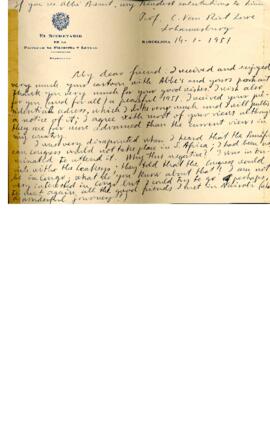 If you see Abbé Breuil, my kindest salutations to him.
EL SECRETARIO
DE LA
FACULTAD DE FILOSOFÍA Y LETRAS
Prof. C. Van Riet Lowe
Johannesburg
BARCELONA 14-1-1951
My dear friend: I received and enjoyed
very much your cartoon with Abbé's and yours
thank you very much for your good wishes! I wish also
for you and for all a peaceful 1951. I received your
adress, which I like very much and I will publish
a notice of it; I agree with most of your views although
they are far more advanced than the current views in
my country.
I was very disapointed when I heard that the
can congress would not take place in S. Africa; I had been
minated to attend it. Why this negative? I was in
with the Leakeys: they told that the congress would
be in Congo, what do you know about that? I am not
very interested in Congo but I could try to go perhaps,
to meet again all the good friends I met in Nairobi
wonderful journey!